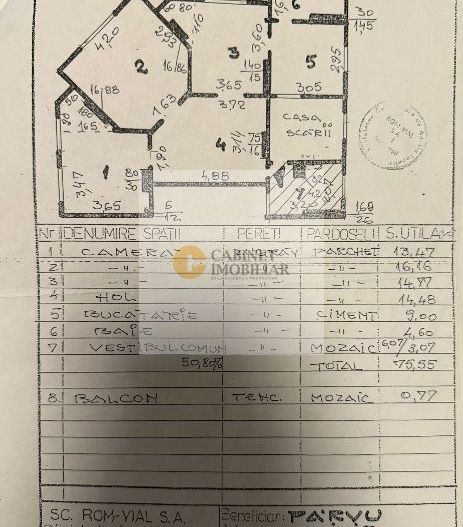 4,20
2,93
1,10
60 80
3,60
6
30
1,45
2
3
5
2,95
16/88
16/86
140
15
3,65
3,05
50
16/88
1,63
3,72
165
CASA
SCĂRII
4
75
1
1,90
3,47
4,88
3,65
6
12
168
26
Nr DENUMIRE SPAȚII PEREȚI PARDOSELI S. UTILĂ
1 CAMERĂ ZUGRAV PARCHET 13,47
2 -"- -"- -"- 16,16
3 -"- -"- -"- 14,77
4 HOL -"- -"- 14,48
5 BUCĂTĂRIE -"- CIMENT 9,00
6 BAIE -"- -"- 4,60
7 VESTIBUL COMUN -"- MOZAIC 6,07/3,07
50,80% TOTAL 75,55
8 BALCON TENC. MOZAIC 0,77
CABINET
IMOBILIAR
SC. ROM-VIAL S.A. Beneficiar: PÂRVU